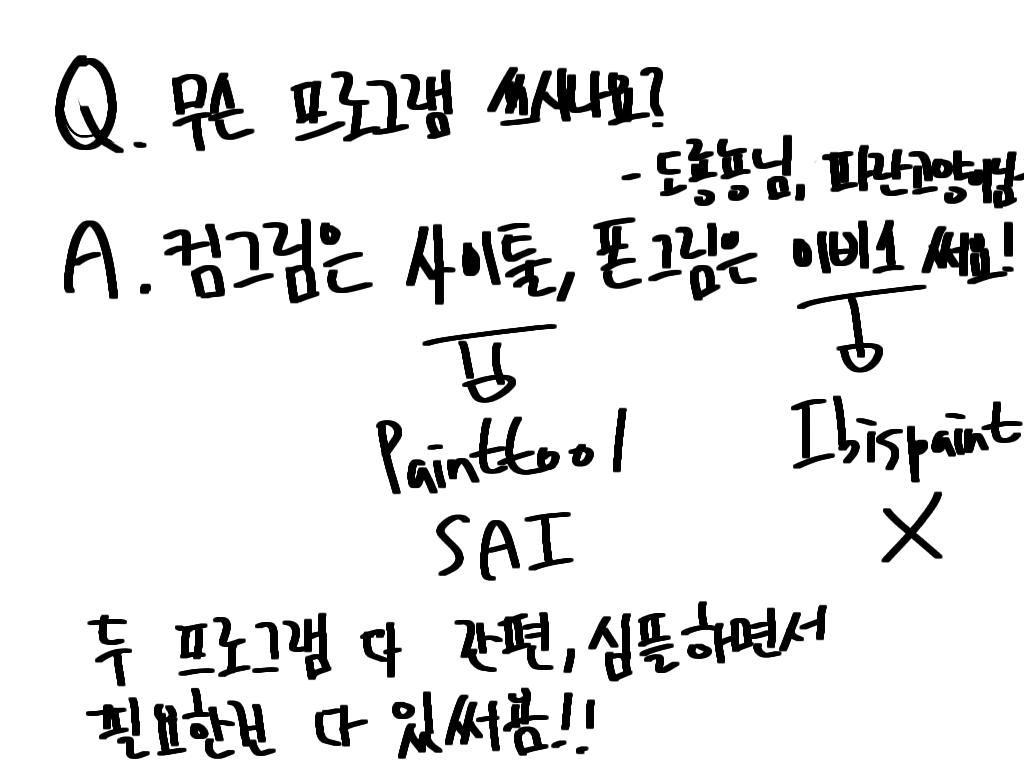 Q. 무슨 프로그램 쓰시나요?
- 도롱뇽님, 파란고양이님
A. 컴그림은 사이툴, 폰그림은 이비스 써요!
Painttool Ibispaint
SAI X
두 프로그램 다 간편, 심플하면서
필요한건 다 있써욤!!